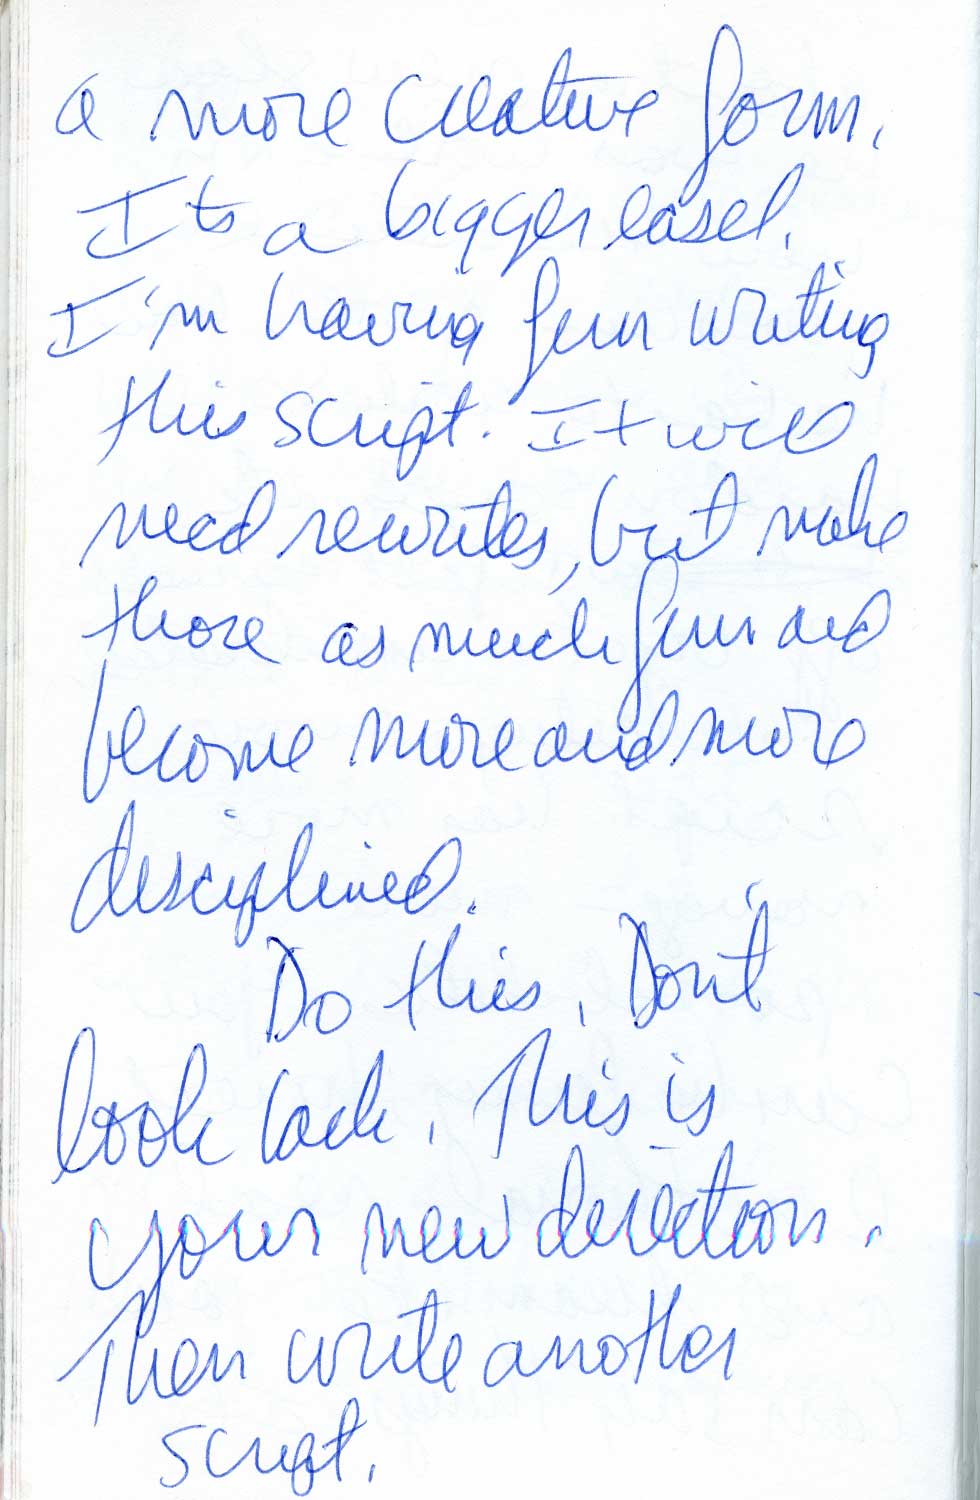 a more creative form.
Its a bigger easel.
I'm having fun writing
this script. It will
need rewrites, but make
those as much fun and
become more and more
disciplined.
Do this. Don't
look back. This is
your new direction.
Then write another
script.